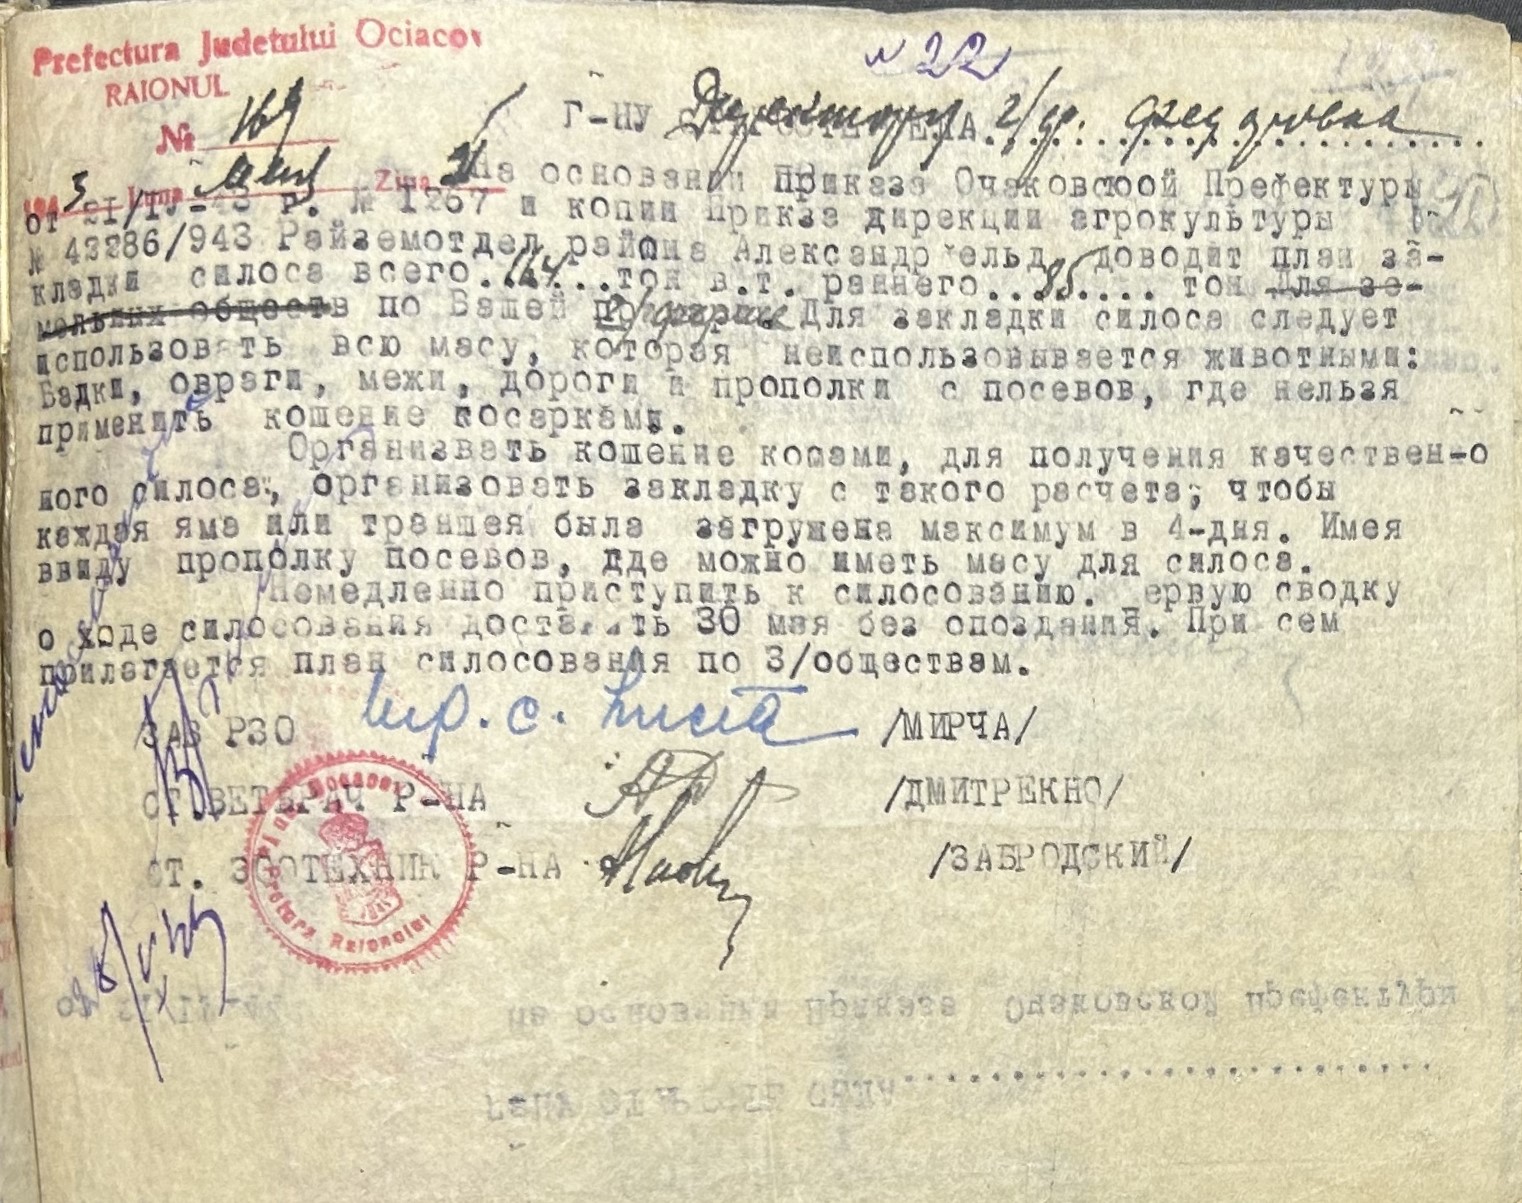 Prefectura Judetului Ociacov
RAIONUL
№ 169
№ 22
Г-НУ Директору г/ф.
194 3 Luna Мая Ziua 21
На основании Приказа Очаковсюой Префектуры
от 21/IV-43 г. № 1267 и копии Прикза дирекции агрокультуры
№ 43286/943 Райземотдел района Александрфельд доводит план за-
кладки силоса всего..164...тон в.т. раннего...85.... тон Для зе-
мельных обществ по Вашей г/ферме Для закладки силоса следует
использовать всю масу, которая неиспользовывается животными:
Балки, овраги, межи, дороги и прополки с посевов, где нельзя
применить кошение косарками.
Организвать кошение косами, для получения качествен-о
ного силоса, организовать закладку с такого расчета, чтобы
каждая яма или траншея была загружена максимум в 4-дня. Имея
ввиду прополку посевов, дде можно иметь масу для силоса.
Немедленно приступить к силосованию. ервую сводку
о ходе силосования доставить 30 мая без опоздания. При сем
прилагается план силосования по З/обществам.
ЗАВ РЗО /МИРЧА/
СТ.ВЕТВРАЧ Р-НА /ДМИТРЕКНО/
СТ. ЗООТЕХНИК Р-НА /ЗАБРОДСКИЙ/
Pretura Raionului
На основании Приказа Очаковской Префектуры
СЕЛА